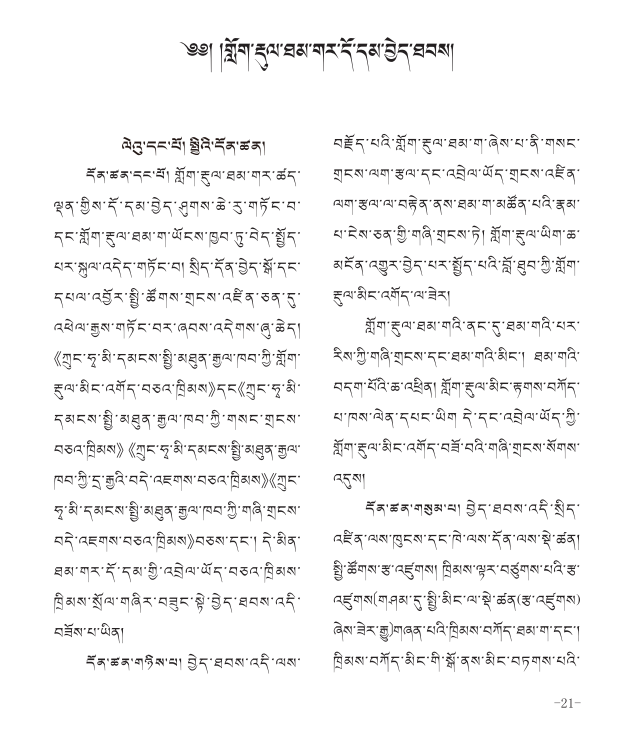 ༄༅། །གློག་རྡུལ་ཐམ་གར་དོ་དམ་བྱེད་ཐབས།
ལེའུ་དང་པོ། སྤྱིའི་དོན་ཚན།
དོན་ཚན་དང་པོ། གློག་རྡུལ་ཐམ་གར་ཚད་
ལྡན་གྱིས་དོ་དམ་བྱེད་ཤུགས་ཆེ་རུ་གཏོང་བ་
དང་གློག་རྡུལ་ཐམ་ག་ཡོངས་ཁྱབ་ཏུ་བེད་སྤྱོད་
པར་སྐུལ་འདེད་གཏོང་བ། སྲིད་དོན་བྱེད་སྒོ་དང་
དཔལ་འབྱོར་སྤྱི་ཚོགས་གྲངས་འཛིན་ཅན་དུ་
འཕེལ་རྒྱས་གཏོང་བར་ཞབས་འདེགས་ཞུ་ཆེད།
《ཀྲུང་ཧྭ་མི་དམངས་སྤྱི་མཐུན་རྒྱལ་ཁབ་ཀྱི་གློག་
རྡུལ་མིང་འགོད་བཅའ་ཁྲིམས》དང《ཀྲུང་ཧྭ་མི་
དམངས་སྤྱི་མཐུན་རྒྱལ་ཁབ་ཀྱི་གསང་གྲངས་
བཅའ་ཁྲིམས》《ཀྲུང་ཧྭ་མི་དམངས་སྤྱི་མཐུན་རྒྱལ་
ཁབ་ཀྱི་དྲ་རྒྱའི་བདེ་འཇགས་བཅའ་ཁྲིམས》《ཀྲུང་
ཧྭ་མི་དམངས་སྤྱི་མཐུན་རྒྱལ་ཁབ་ཀྱི་གཞི་གྲངས་
བདེ་འཇགས་བཅའ་ཁྲིམས》བཅས་དང་། དེ་མིན་
ཐམ་གར་དོ་དམ་གྱི་འབྲེལ་ཡོད་བཅའ་ཁྲིམས་
ཁྲིམས་སྲོལ་གཞིར་བཟུང་སྟེ་བྱེད་ཐབས་འདི་
བཟོས་པ་ཡིན།
དོན་ཚན་གཉིས་པ། བྱེད་ཐབས་འདི་ལས་
བརྗོད་པའི་གློག་རྡུལ་ཐམ་ག་ཞེས་པ་ནི་གསང་
གྲངས་ལག་རྩལ་དང་འབྲེལ་ཡོད་གྲངས་འཛིན་
ལག་རྩལ་ལ་བརྟེན་ནས་ཐམ་ག་མཚོན་པའི་རྣམ་
པ་ངེས་ཅན་གྱི་གཞི་གྲངས་ཏེ། གློག་རྡུལ་ཡིག་ཆ་
མངོན་འགྱུར་བྱེད་པར་སྤྱོད་པའི་བློ་ཐུབ་ཀྱི་གློག་
རྡུལ་མིང་འགོད་ལ་ཟེར།
གློག་རྡུལ་ཐམ་གའི་ནང་དུ་ཐམ་གའི་པར་
རིས་ཀྱི་གཞི་གྲངས་དང་ཐམ་གའི་མིང་། ཐམ་གའི་
བདག་པོའི་ཆ་འཕྲིན། གློག་རྡུལ་མིང་རྟགས་བཀོད་
པ་ཁས་ལེན་དཔང་ཡིག དེ་དང་འབྲེལ་ཡོད་ཀྱི་
གློག་རྡུལ་མིང་འགོད་བཟོ་བའི་གཞི་གྲངས་སོགས་
འདུས།
དོན་ཚན་གསུམ་པ། བྱེད་ཐབས་འདི་སྲིད་
འཛིན་ལས་ཁུངས་དང་ཁེ་ལས་དོན་ལས་སྡེ་ཚན།
སྤྱི་ཚོགས་རྩ་འཛུགས། ཁྲིམས་ལྟར་བཙུགས་པའི་རྩ་
འཛུགས(གཤམ་དུ་སྤྱི་མིང་ལ་སྡེ་ཚན(རྩ་འཛུགས)
ཞེས་ཟེར་རྒྱུ)གཞན་པའི་ཁྲིམས་བཀོད་ཐམ་ག་དང་།
ཁྲིམས་བཀོད་མིང་གི་སྒོ་ནས་མིང་བཏགས་པའི་
-21-